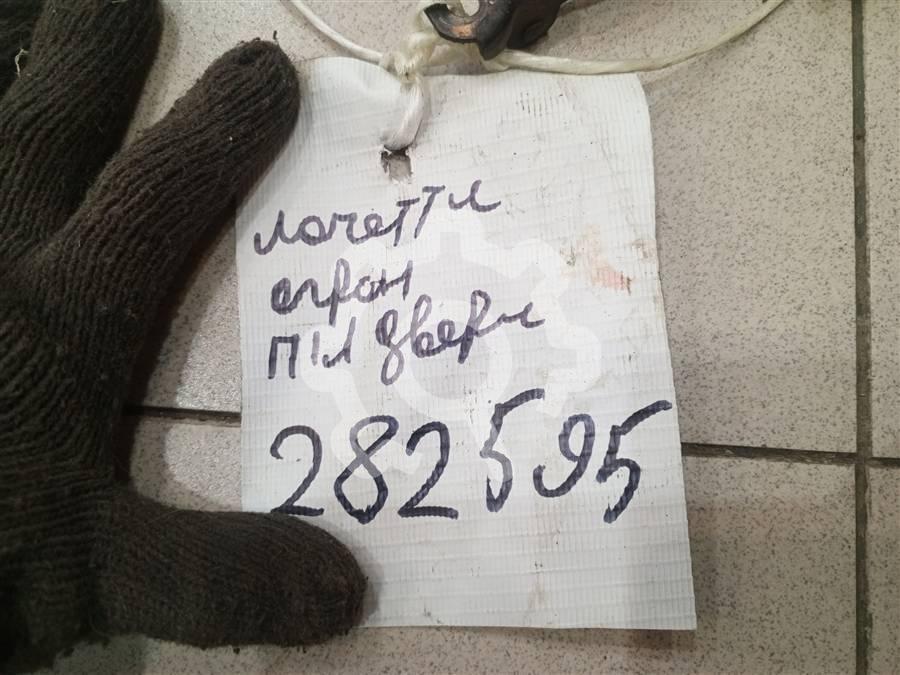 лачетти
огран
П\Л двери
282595